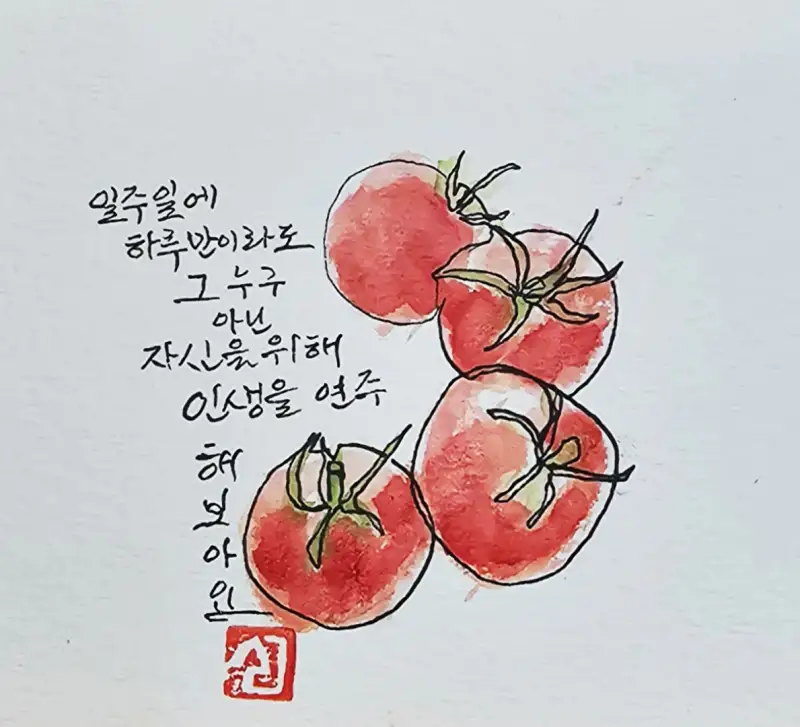 일주일에
하루만이라도
그 누구
아닌
자신을 위해
인생을 연주
해
보
아
요
심